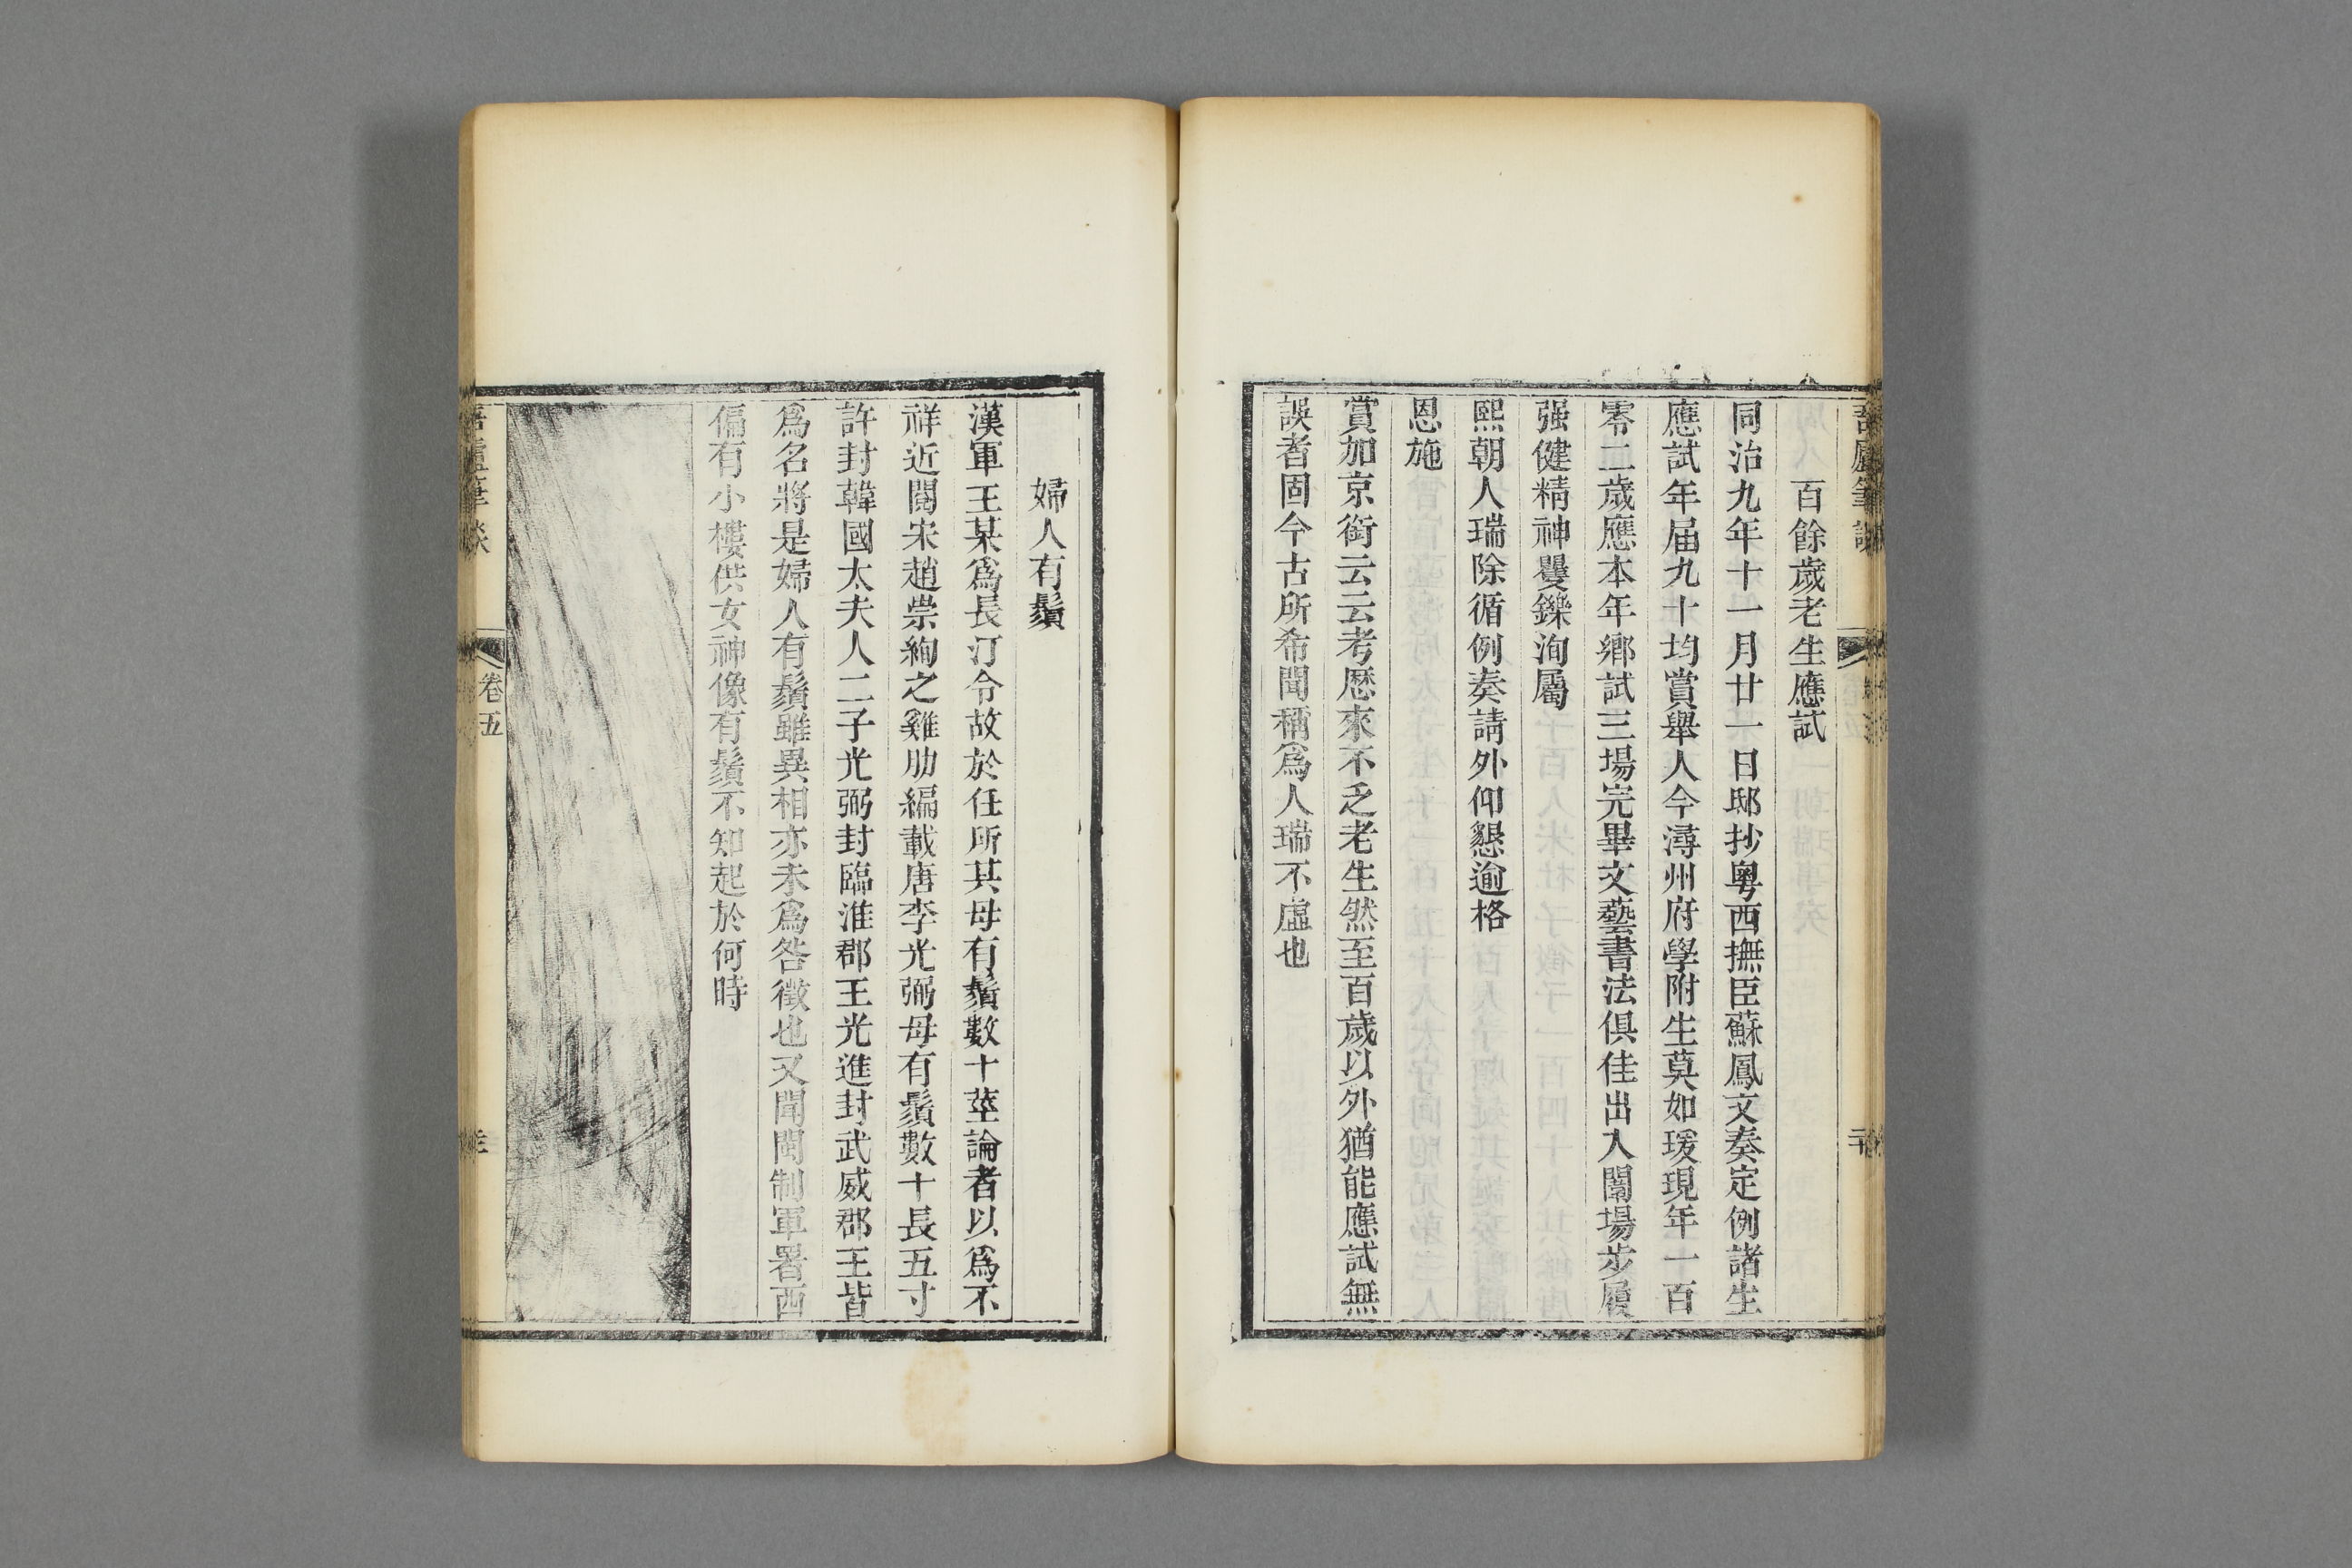 百餘歲老生應試
同治九年十一月廿一日邸抄粵西撫臣蘇鳳文奏定例諸生
應試年届九十均賞舉人今潯州府學附生莫如瑗現年一百
零二歲應本年鄉試三場完畢文藝書法俱佳出入闈場步履
强健精神矍鑠洵屬
熙朝人瑞除循例奏請外仰懇逾格
恩施
賞加京銜云云考歷來不乏老生然至百歲以外猶能應試無
誤者固今古所希聞稱爲人瑞不虛也
婦人有鬚
漢軍王某爲長汀令故於任所其母有鬚數十莖論者以爲不
祥近閱宋趙崇絢之雞肋編載唐李光弼母有鬚數十長五寸
許封韓國太夫人二子光弼封臨淮郡王光進封武威郡王皆
爲名將是婦人有鬚雖異相亦未爲咎徵也又聞閩制軍署西
偏有小樓供女神像有鬚不知起於何時
卷五